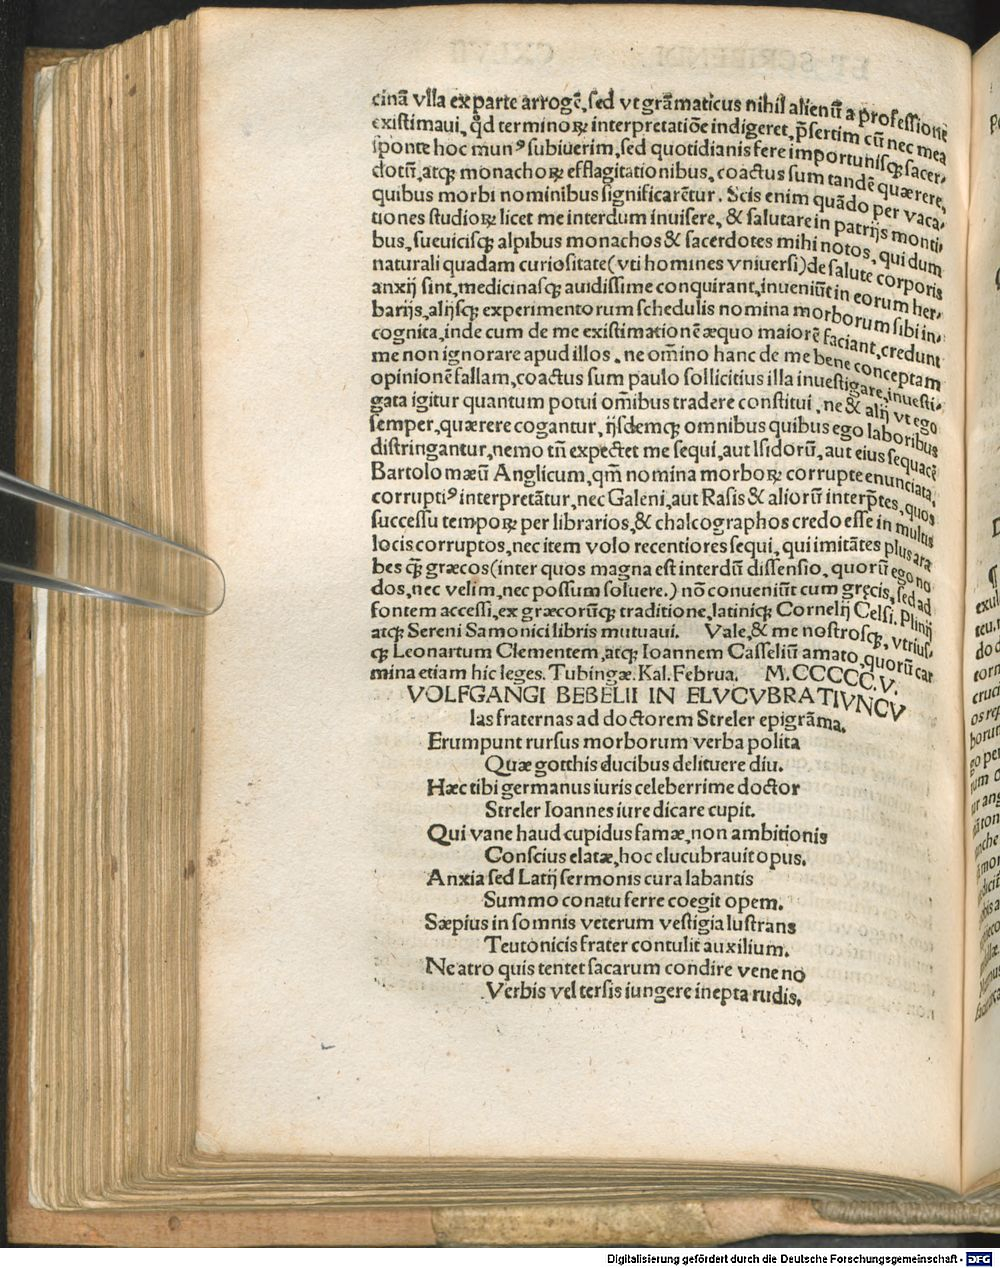 cinā vlla ex parte arrogē, sed vt grāmaticus nihil alienū a professione
existimaui, qd̕ terminoꝝ interpretatiōe indigeret, p̄sertim cū nec mea
sponte hoc munꝰ subiuerim, sed quotidianis fere importunisqꝫ sacer,
dotū, atqꝫ monachoꝝ efflagitationibus, coactus sum tandē quærere,
quibus morbi nominibus significarētur. Scis enim quādo per vaca,
tiones studioꝝ licet me interdum inuisere, & salutare in patrijs monti,
bus, sueuicisqꝫ alpibus monachos & sacerdotes mihi notos, qui dum
naturali quadam curiositate (vti homines vniuersi) de salute corporis
anxij sint, medicinasqꝫ auidissime conquirant, inueniūt in eorum her,
barijs, alijsqꝫ experimentorum schedulis nomina morborum sibi in,
cognita, inde cum de me existimationē æquo maiorē faciant, credunt
me non ignorare apud illos. ne om̄ino hanc de me bene conceptam
opinionē fallam, coactus sum paulo sollicitius illa inuestigare, inuesti,
gata igitur quantum potui om̄ibus tradere constitui, ne & alij vt ego
semper, quærere cogantur, ijsdemqꝫ omnibus quibus ego laboribus
distringantur, nemo tn̄ expectet me sequi, aut Isidorū, aut eius sequacē
Bartolomæū Anglicum, qm̄ nomina morboꝝ corrupte enunciata,
corruptiꝰ interpretātur, nec Galeni, aut Rasis & aliorū interp̄tes, quos
successu tempoꝝ per librarios, & chalcographos credo esse in multis
locis corruptos, nec item volo recentiores sequi, qui imitātes plus ara
bes qꝫ̄ græcos (inter quos magna est interdū dissensio, quorū ego no
dos, nec velim, nec possum soluere.) nō conueniūt cum gręcis, sed ad
fontem accessi, ex græcorūqꝫ traditione, latiniqꝫ Cornelij Celsi. Plinij
atqꝫ Sereni Samonici libris mutuaui. Vale, & me nostrosqꝫ, vtrius,
qꝫ Leonartum Clementem, atqꝫ Ioannem Casseliū amato, quorū car
mina etiam hic leges. Tubingæ. Kal. Februa. M.CCCCC.V.
VOLFGANGI BEBELII IN ELVCVBRATIVNCV
las fraternas ad doctorem Streler epigrāma.
Erumpunt rursus morborum verba polita
Quæ gotthis ducibus delituere diu.
Hæc tibi germanus iuris celeberrime doctor
Streler Ioannes iure dicare cupit.
Qui vane haud cupidus famæ, non ambitionis
Conscius elatæ, hoc elucubrauit opus.
Anxia sed Latij sermonis cura labantis
Summo conatu ferre coegit opem.
Sæpius in somnis veterum vestigia lustrans
Teutonicis frater contulit auxilium.
Ne atro quis tentet sacarum condire veneno
Verbis vel tersis iungere inepta rudis.
Digitalisierung gefördert durch die Deutsche Forschungsgemeinschaft - DFG